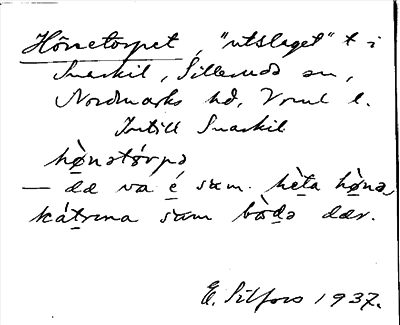 Hönetorpet, "utslaget" t i
Snarkil, Sillerud sn,
Nordmarks hd, Vrml l.
Intill Snarkil
hø̱nətórpə
— dæ va é̱ sɷm. hè̱ta hø̱̀nə
ká̱trɩna sɷm bò̱də dær.
E. Silfors 1937.